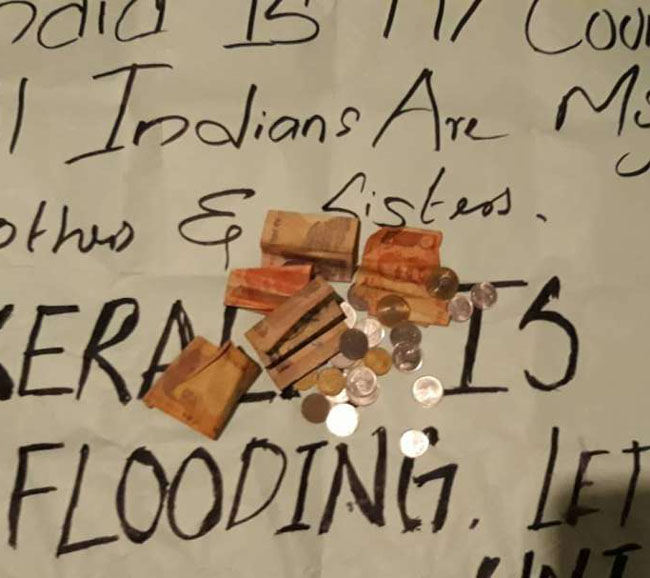 India Is My Coun
l Indians Are My
others & Sisters.
KERALA IS
FLOODING. LET
UNI